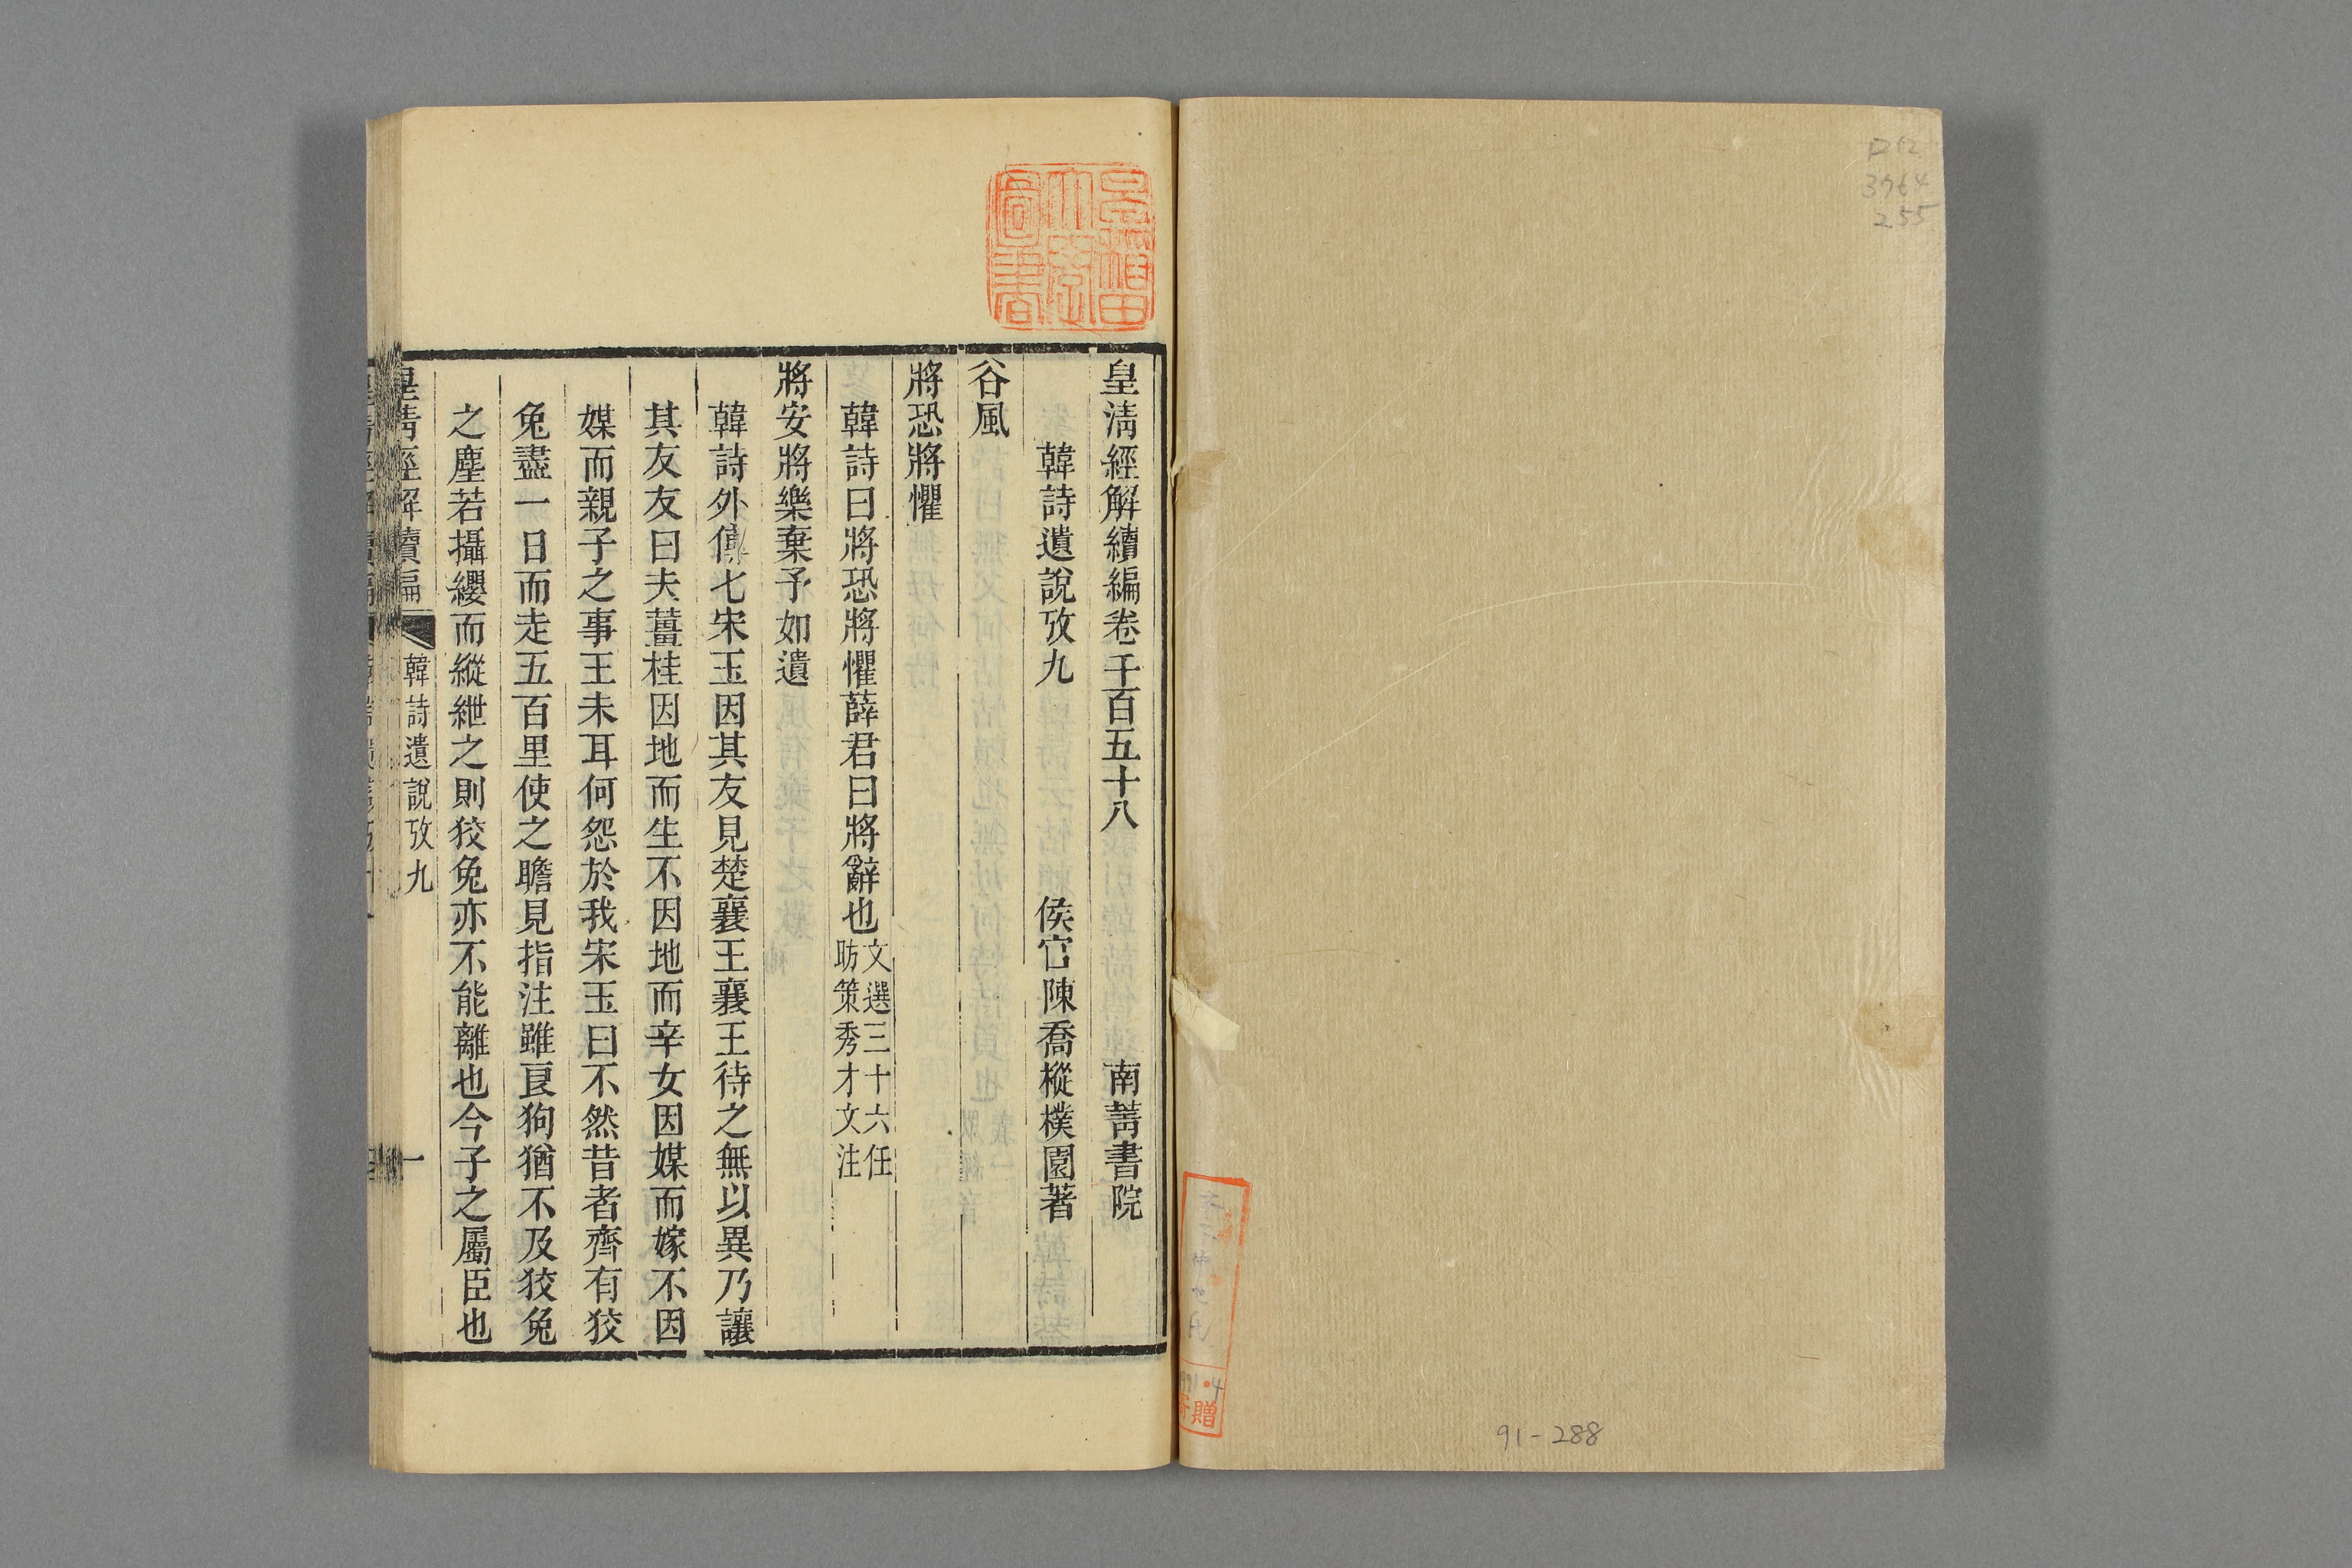 皇淸經解續編卷千百五十八
南菁書院
韓詩遺說攷九
侯官陳喬樅樸園著
谷風
將恐將懼
韓詩曰將恐將懼薛君曰將辭也
文選三十六任
昉策秀才文注
將安將樂棄予如遺
韓詩外傳七宋玉因其友見楚襄王襄王待之無以異乃讓
其友友曰夫薑桂因地而生不因地而辛女因媒而嫁不因
媒而親子之事王未耳何怨於我宋玉曰不然昔者齊有狡
兔盡一日而走五百里使之瞻見指注雖良狗猶不及狡兔
之塵若攝纓而縱紲之則狡兔亦不能離也今子之屬臣也
皇淸經解續編
韓詩遺說攷九
一
景福大學圖書
寄贈
P12
3764
255
91-288